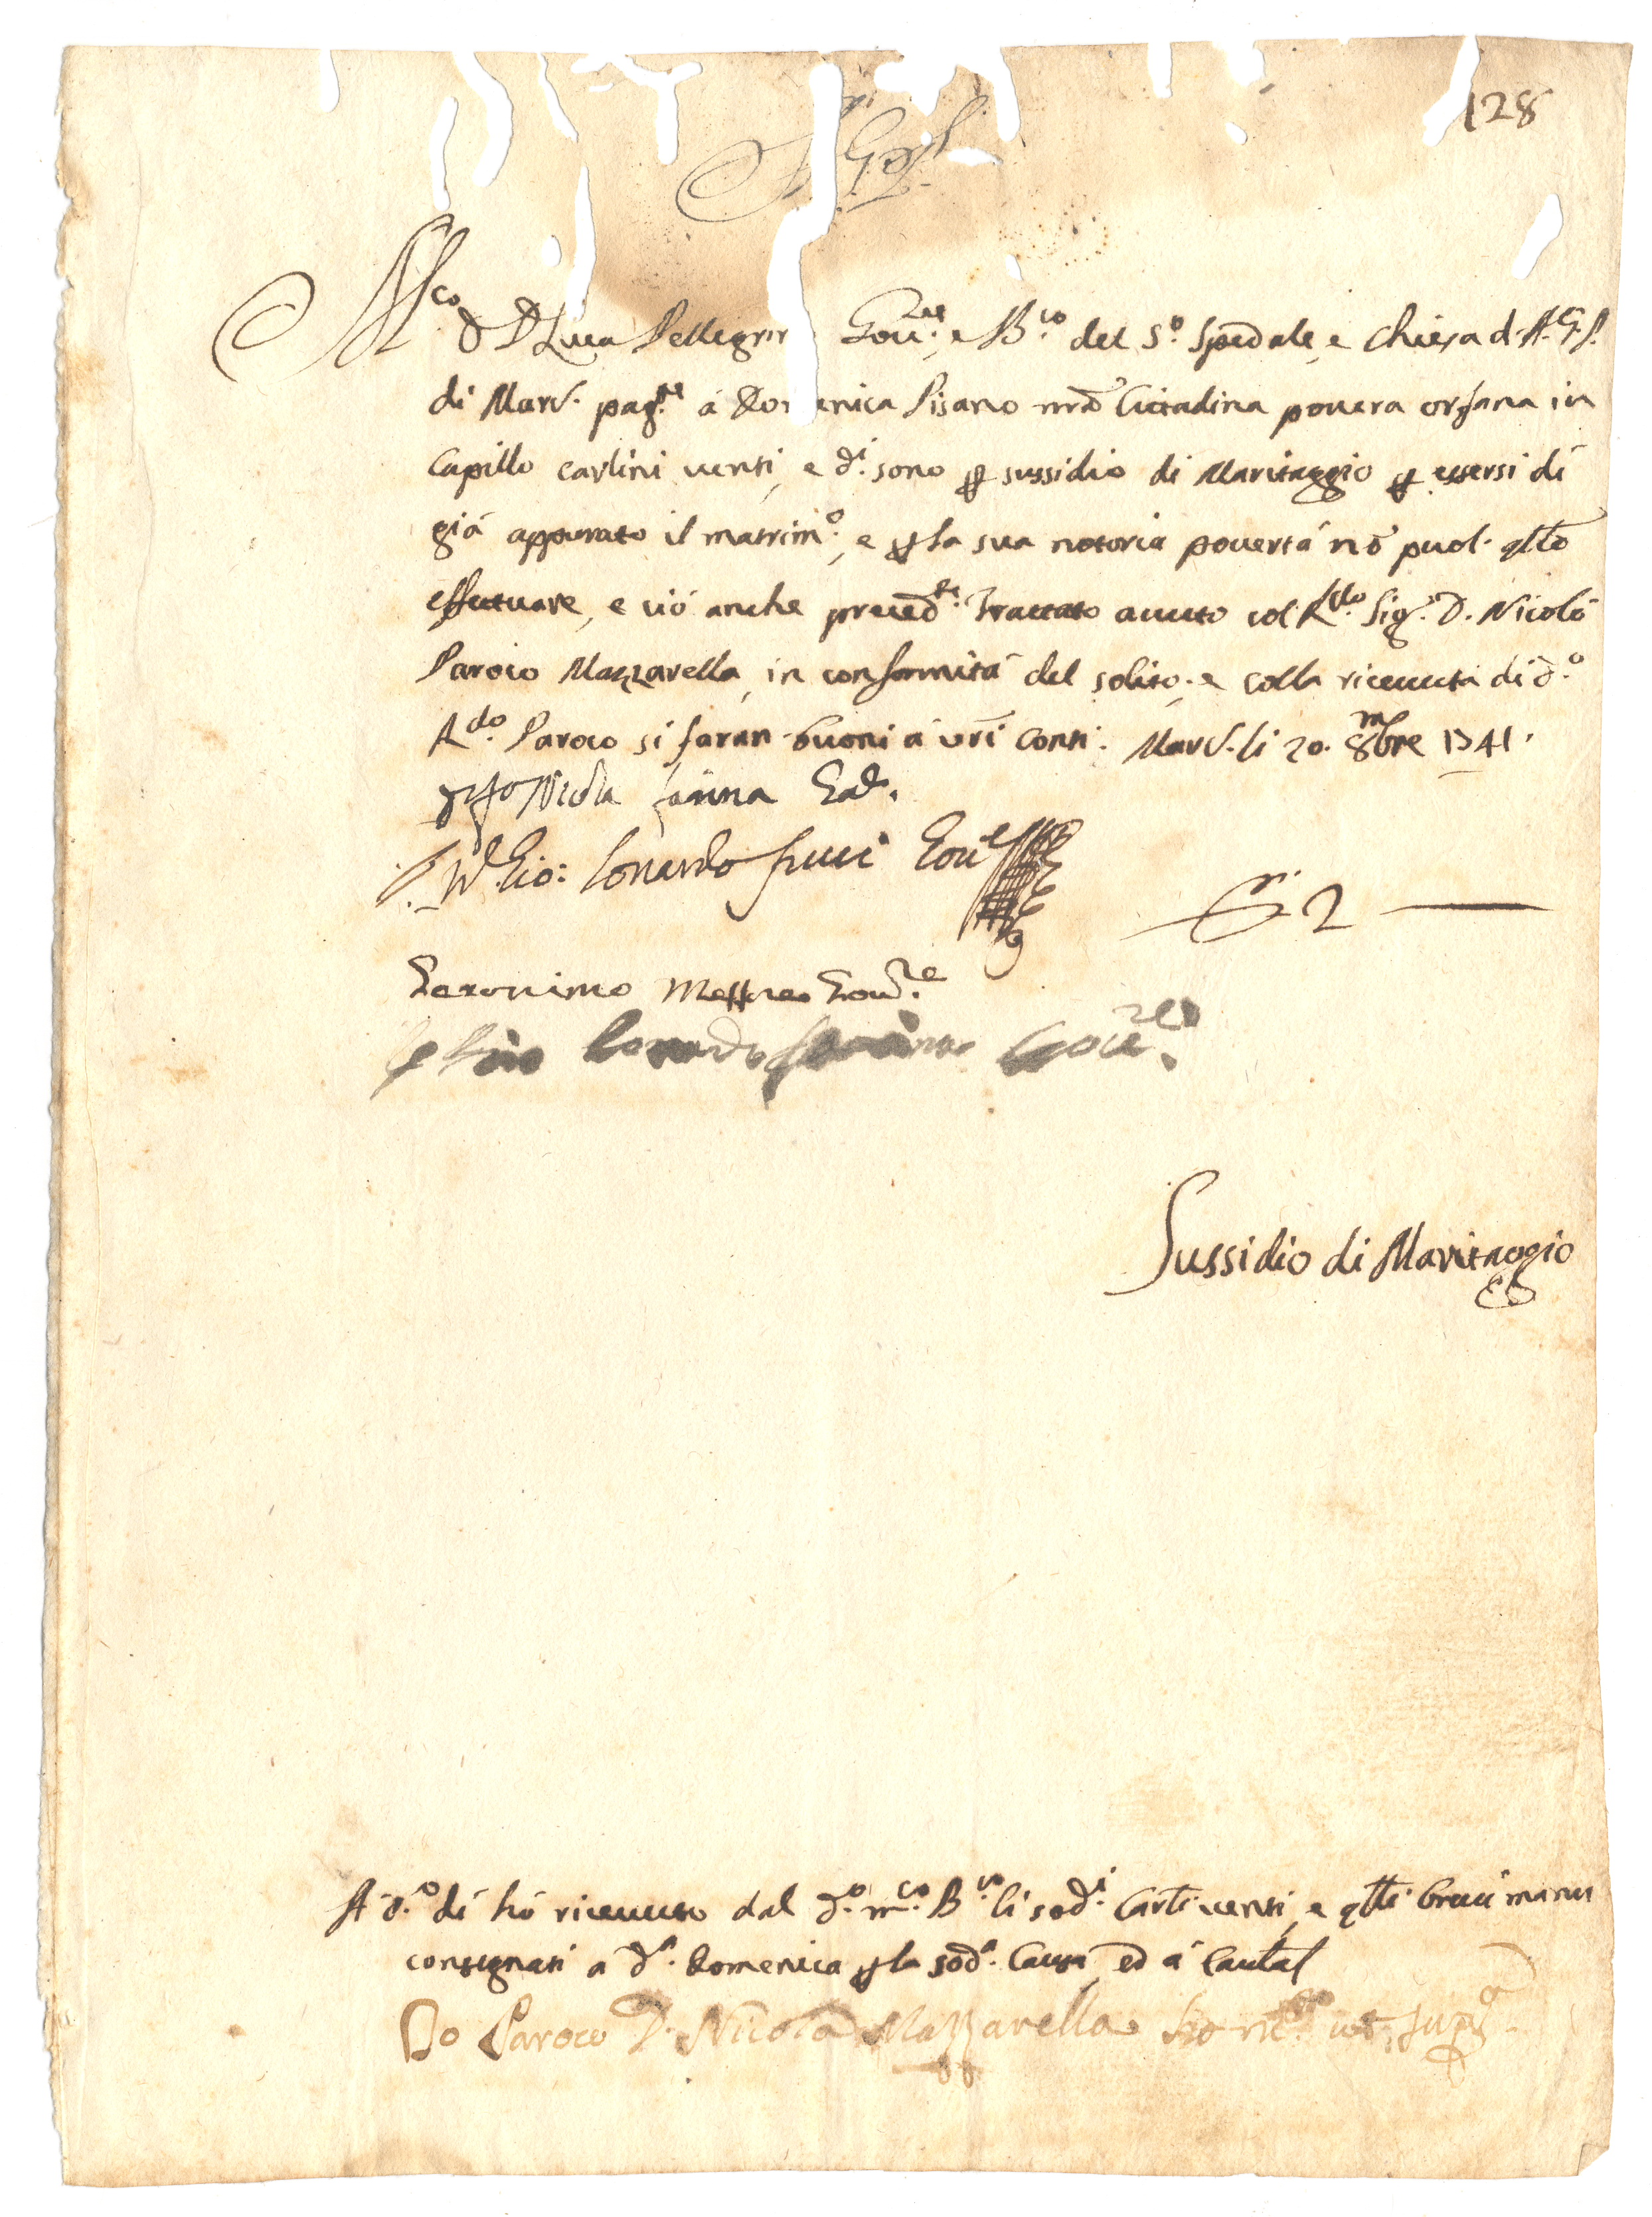 128
A.G.P.
M.co D. D. Luca Pellegrin Gou.re, e B.ro del S.o Spedale, e Chiesa d. A.G.P.
di Marc. pag.te á Domenica Pisano nrã Cittadina pouera orfana in
Capillo carlini venti, e d.i sono ꝑ sussidio di Maritaggio ꝑ essersi di
giá appurato il matrim.o, e ꝑ la sua notoria pouertá nō puol. qllo
effettuare, e ció anche preced.te Trattato auuto col R.do Sig. D. Nicoló
Paroco Mazzarella, in conformitá del solito, e colla riceuuta di d.o
R.do Paroco si faran buoni á vrĩ Conti. Marc. li 20. 8mbre 1741.
Nicola farina
Gio: Lonardo Gou.re
D.ti 2
Geronimo Gou.re
Lonardo Gou.re
Sussidio di Maritaggio
A d.o dí hó riceuuto dal d.o m.co B.ro li sod.i Carli venti, e qlli breui manu
consegnati a d.a Domenica ꝑ la sod.a Causa, ed á Cautal
Io Paroco D. Nicola Mazzarella ho ric.to ut sup.a